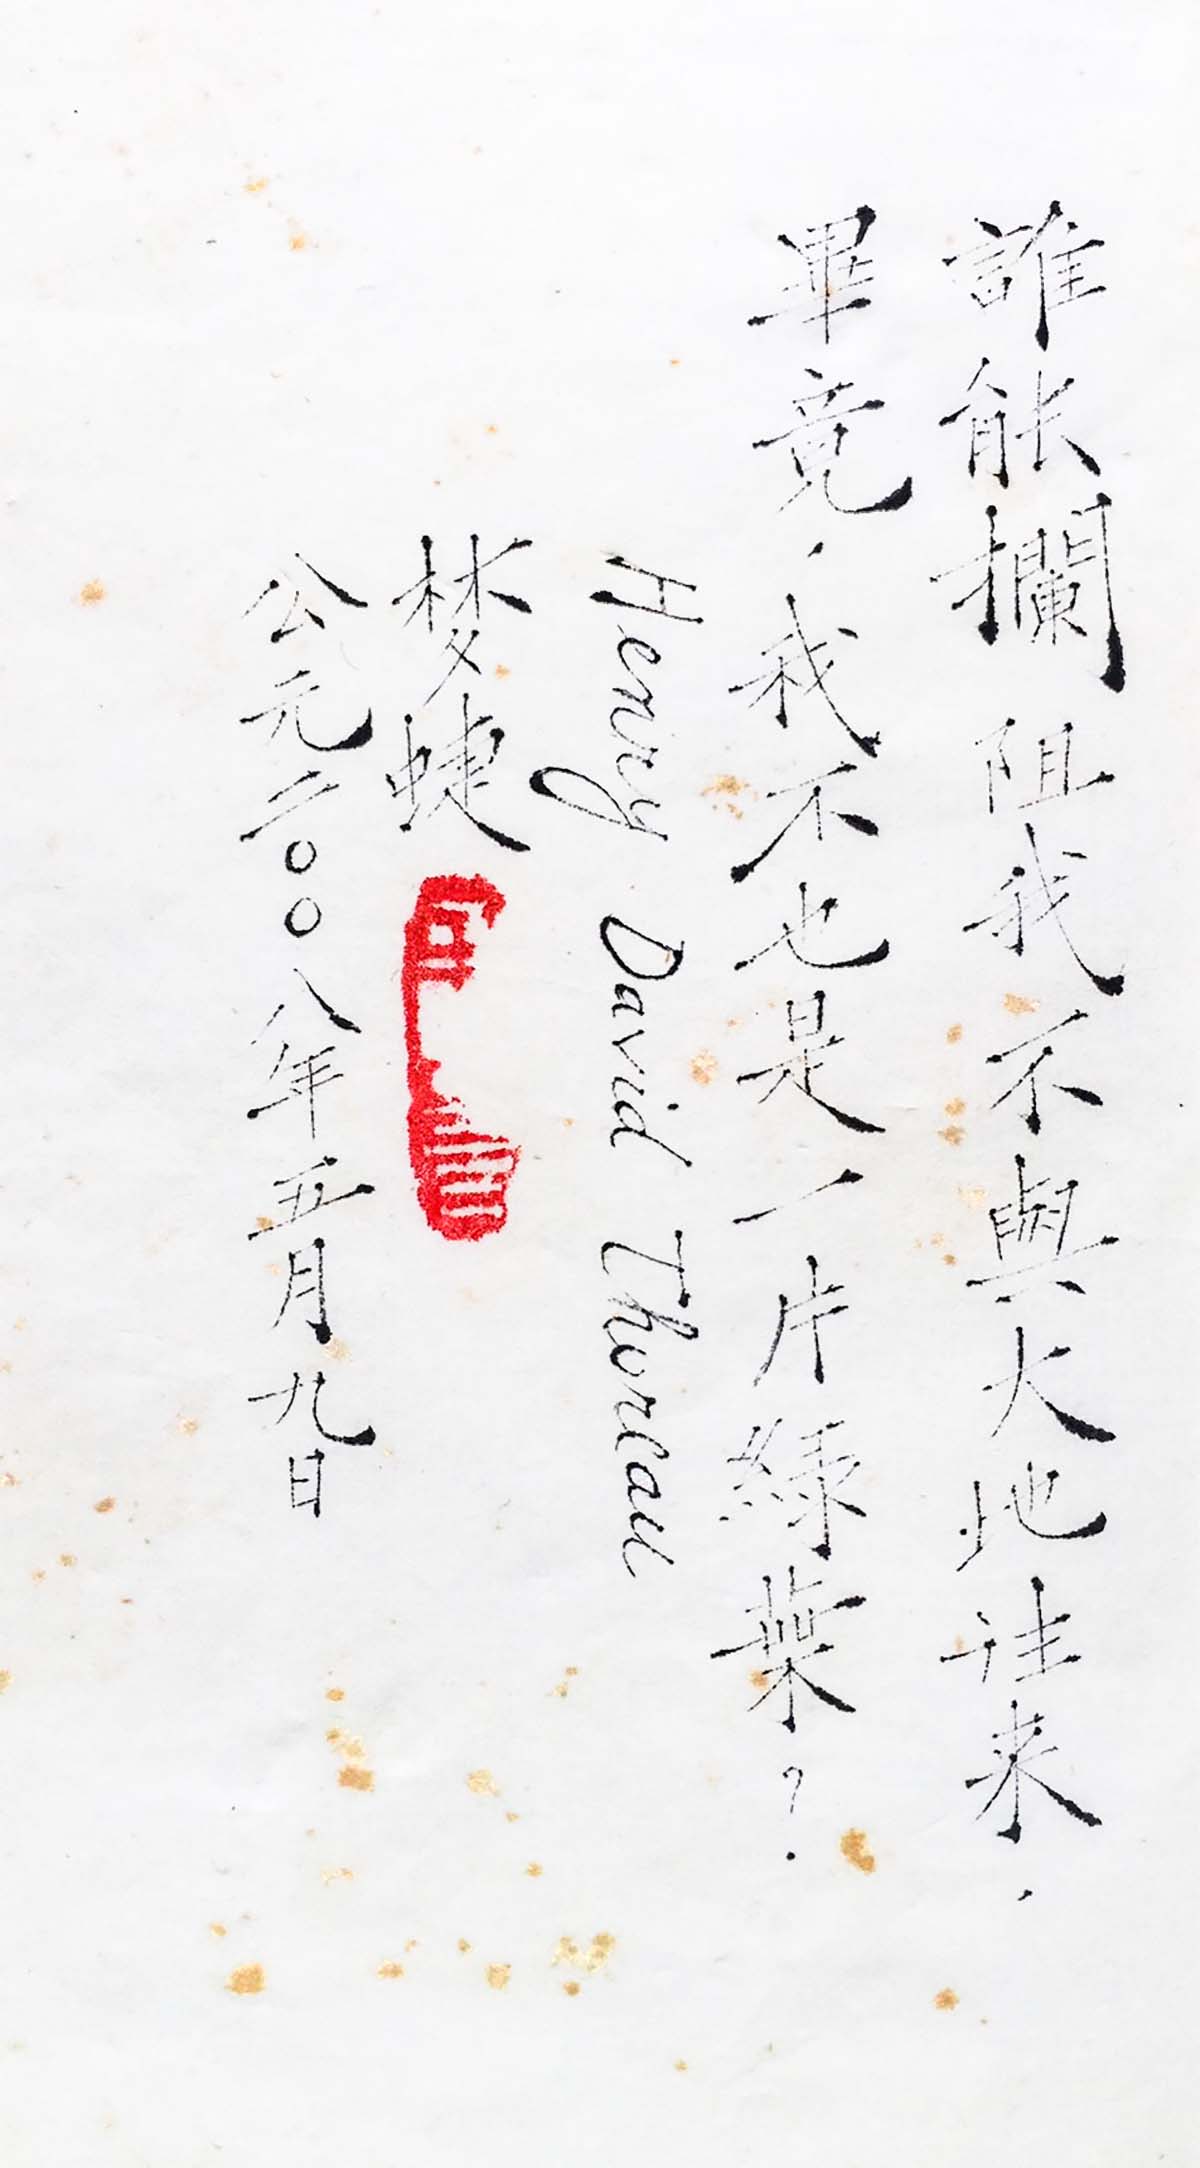 誰能攔阻我不與大地往来，
畢竟，我不也是一片綠葉？
Henry David Thoreau
梦蜨
公元二〇〇八年五月九日